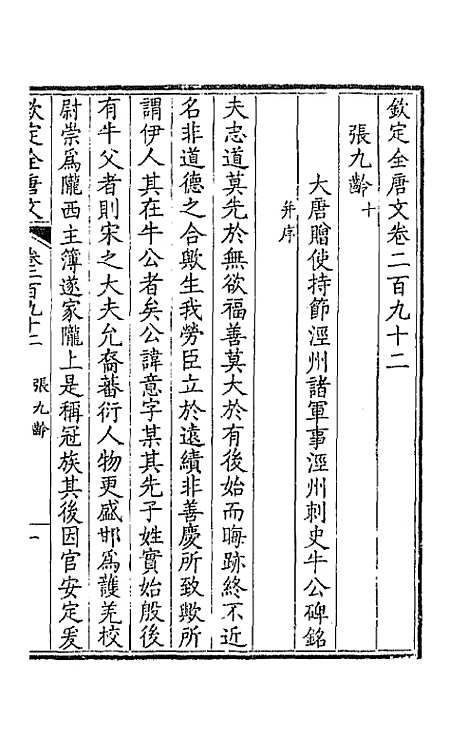 欽定全唐文卷二百九十二
張九齡十
大唐贈使持節涇州諸軍事涇州刺史牛公碑銘
并序
夫志道莫先於無欲福善莫大於有後始而晦跡終不近
名非道德之合歟生我勞臣立於遠績非善慶所致歟所
謂伊人其在牛公者矣公諱意字某其先子姓實始殷後
有牛父者則宋之大夫允裔蕃衍人物更盛邯為護羌校
尉崇為隴西主簿遂家隴上是稱冠族其後因官安定爰
欽定全唐文
卷二百九十二
張九齡
一